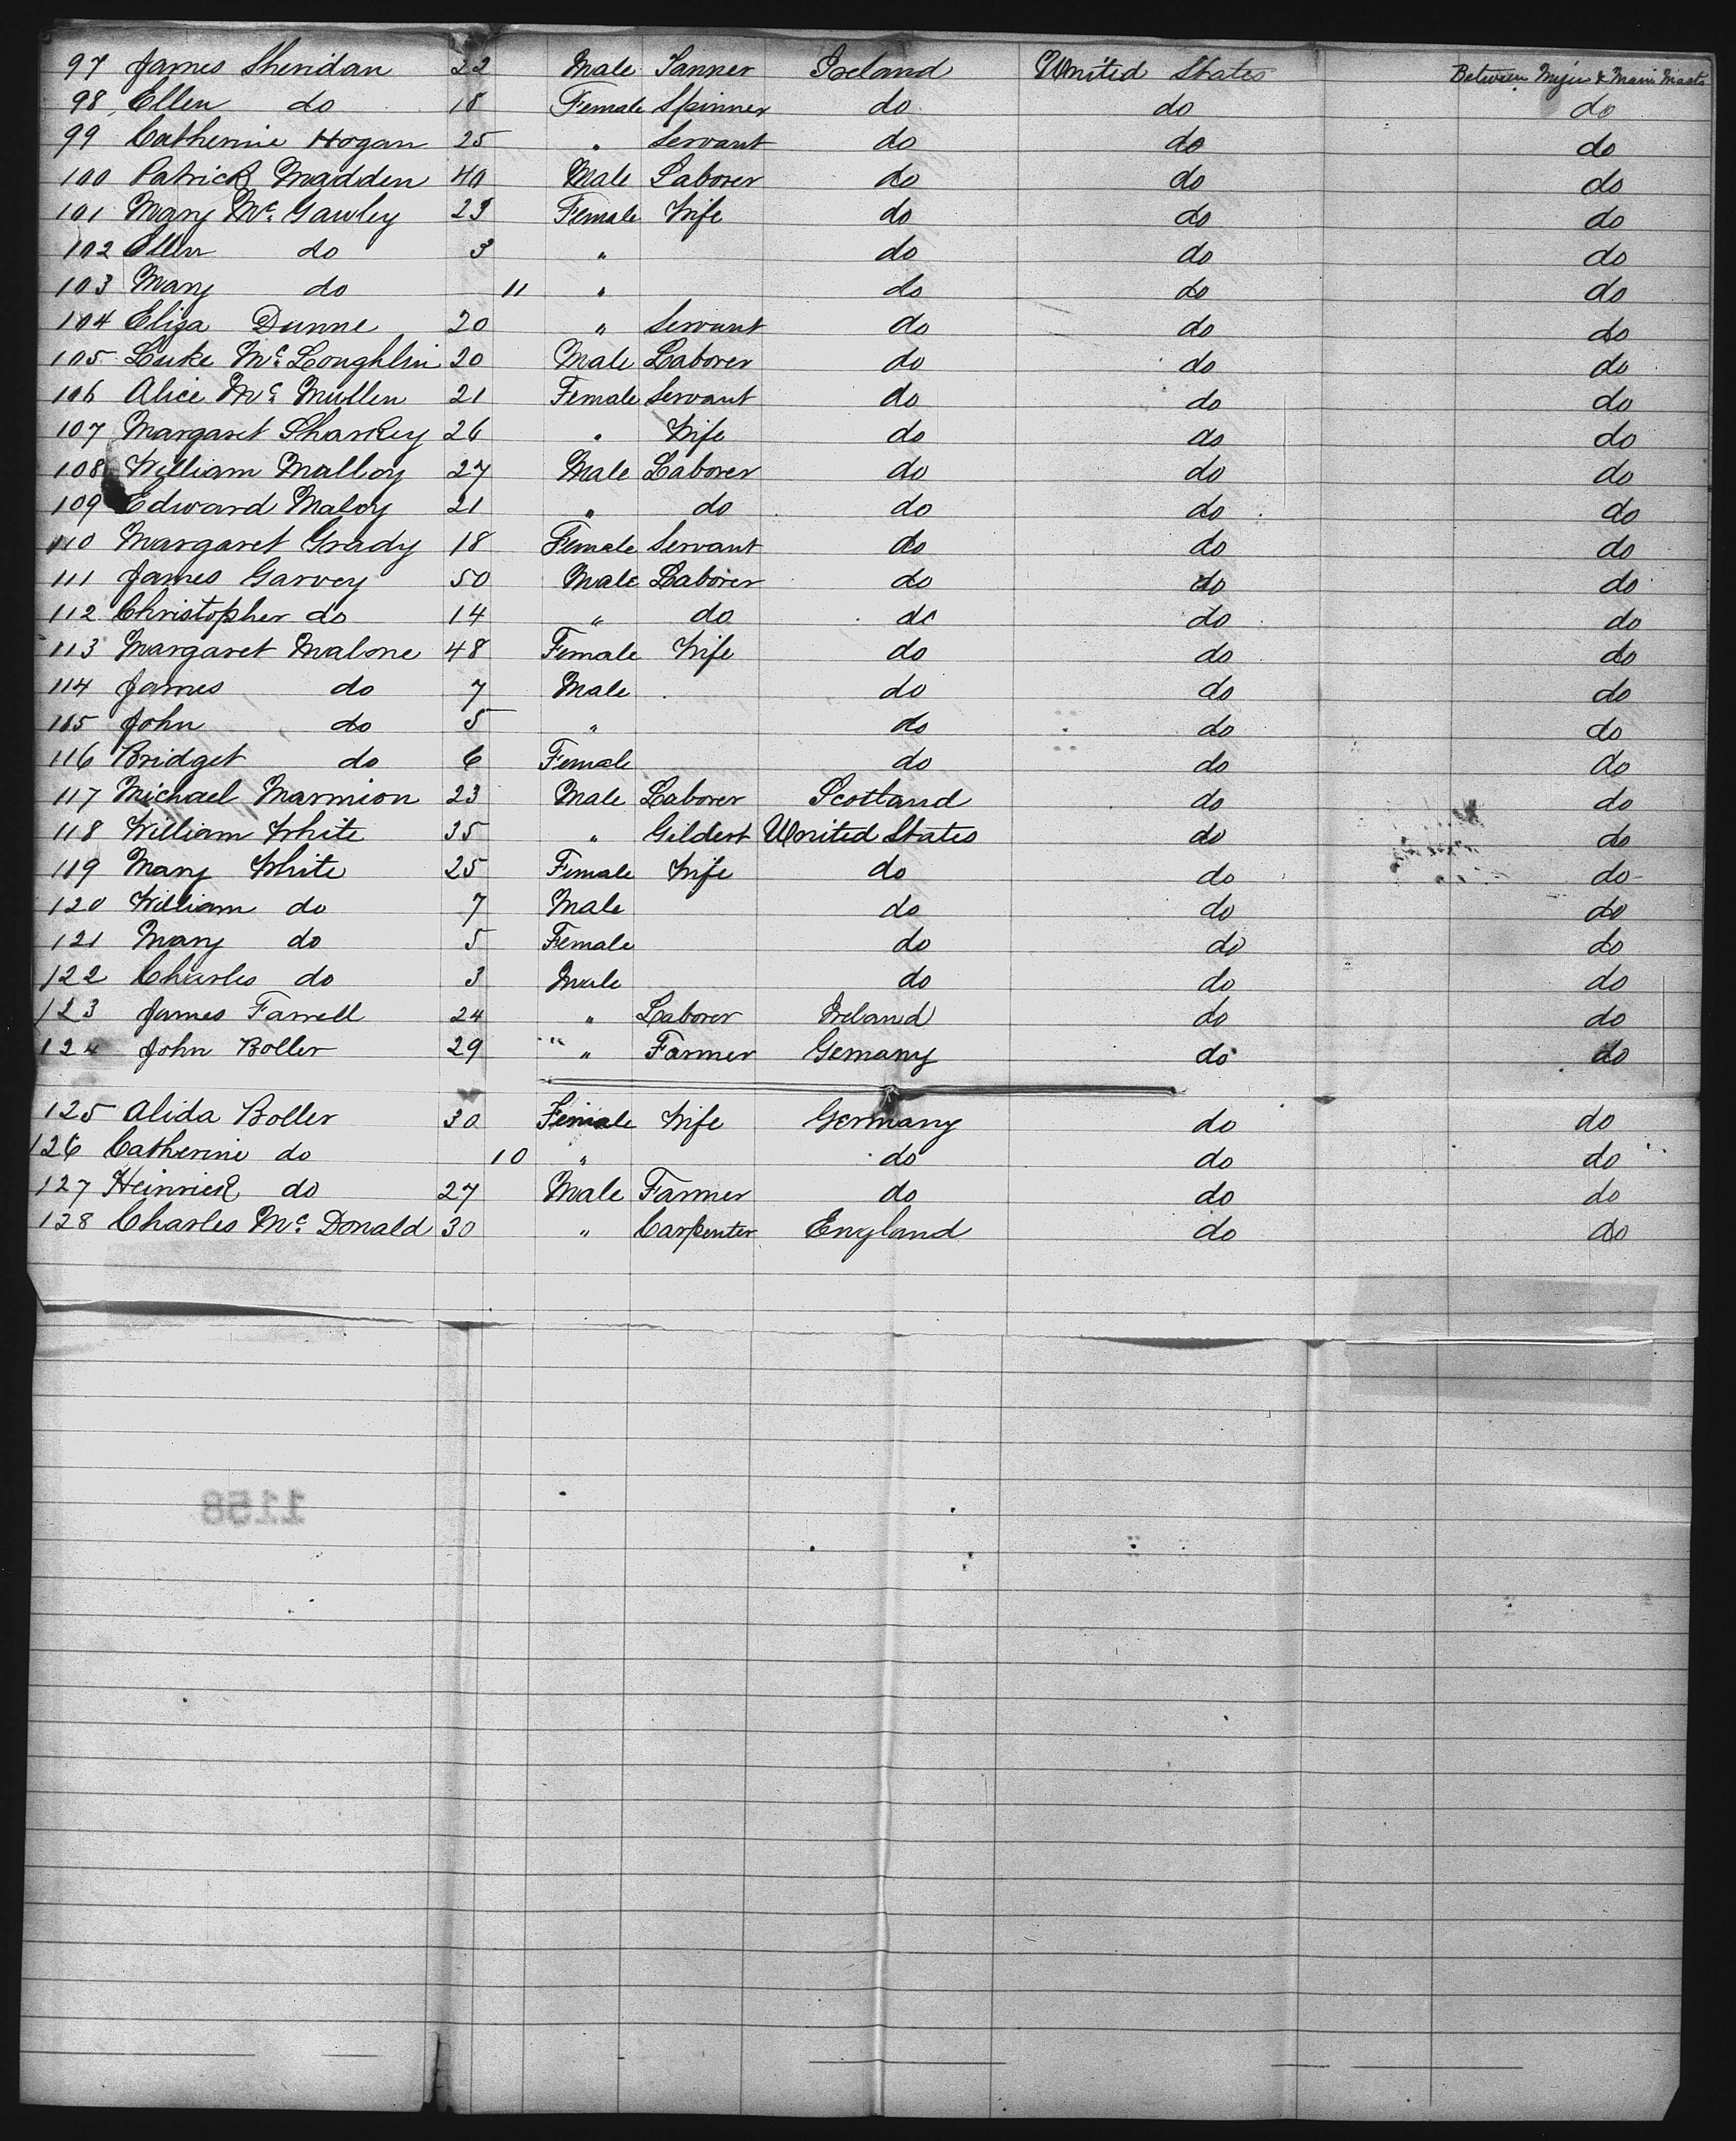 97 James Sheridan 22 Male Tanner Ireland United States Between Mizen & Main Masts
98 Ellen do 18 Female Spinner do do do
99 Catherine Hogan 25 " Servant do do do
100 Patrick Madden 40 Male Laborer do do do
101 Mary Mc Gawley 23 Female Wife do do do
102 Ellen do 3 " do do do
103 Mary do 11 " do do do
104 Eliza Dunne 20 " Servant do do do
105 Luke Mc Loughlin 20 Male Laborer do do do
106 Alice Mc Mullen 21 Female Servant do do do
107 Margaret Sharkey 26 " Wife do do do
108 William Malloy 27 Male Laborer do do do
109 Edward Maloy 21 " do do do do
110 Margaret Grady 18 Female Servant do do do
111 James Garvey 50 Male Laborer do do do
112 Christopher do 14 " do do do do
113 Margaret Malone 48 Female Wife do do do
114 James do 7 Male do do do
115 John do 5 " do do do
116 Bridget do 6 Female do do do
117 Michael Marmion 23 Male Laborer Scotland do do
118 William White 35 " Gilder United States do do
119 Mary White 25 Female Wife do do do
120 William do 7 Male do do do
121 Mary do 5 Female do do do
122 Charles do 3 Male do do do
123 James Farrell 24 " Laborer Ireland do do
124 John Boller 29 " Farmer Gemany do do
125 Alida Boller 30 Female Wife Germany do do
126 Catherine do 10 " do do do
127 Heinrick do 27 Male Farmer do do do
128 Charles Mc Donald 30 " Carpenter England do do
1158